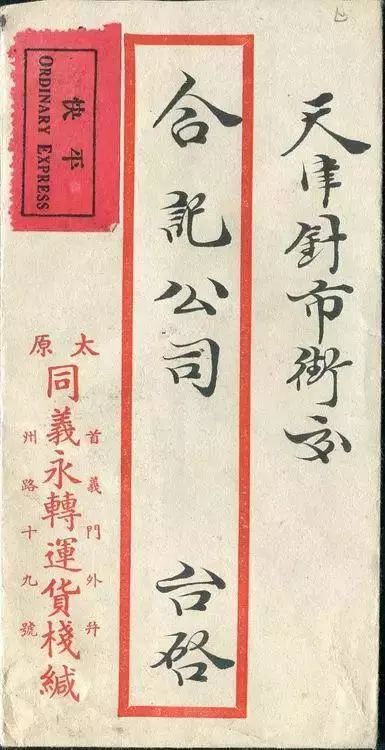 天津針市街交
合記公司 台啓
平快
ORDINARY EXPRESS
太原
首義門外并州路十九號
同義永轉運貨棧緘